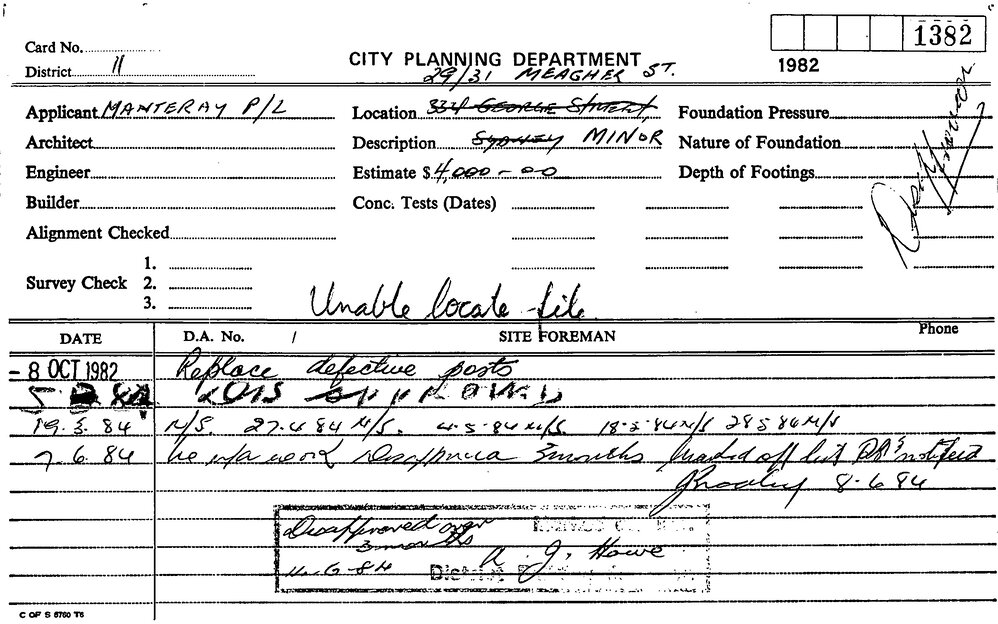 Card No.
1382
CITY PLANNING DEPARTMENT
1982
District 11
29/31 MEAGHER ST.
Applicant MANTERAY P/L
Location 334 GEORGE STREET,
Foundation Pressure
Architect
Description SYDNEY MINOR
Nature of Foundation
Engineer
Estimate $4,000-00
Depth of Footings
Builder
Conc. Tests (Dates)
Alignment Checked
Survey Check
1.
2.
3.
Unable locate file
DATE
D.A. No. /
SITE FOREMAN
Phone
- 8 OCT 1982 Replace defective posts
19.3.84 N/S. 27.4.84 N/S. 4.5.84 N/S. 18.5.84 N/S 28 5 84 N/S
7.6.84 work 3 months marked off list notified
8.6.84
Disapproved over
3 months
11.6.84
A. J. Howe
C OF S 8760 T6